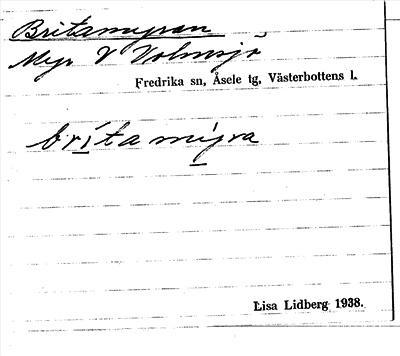 Britamyran
Myr V Volmsjö
Fredrika sn, Åsele tg, Västerbottens l.
britamỿra
Lisa Lidberg 1938.